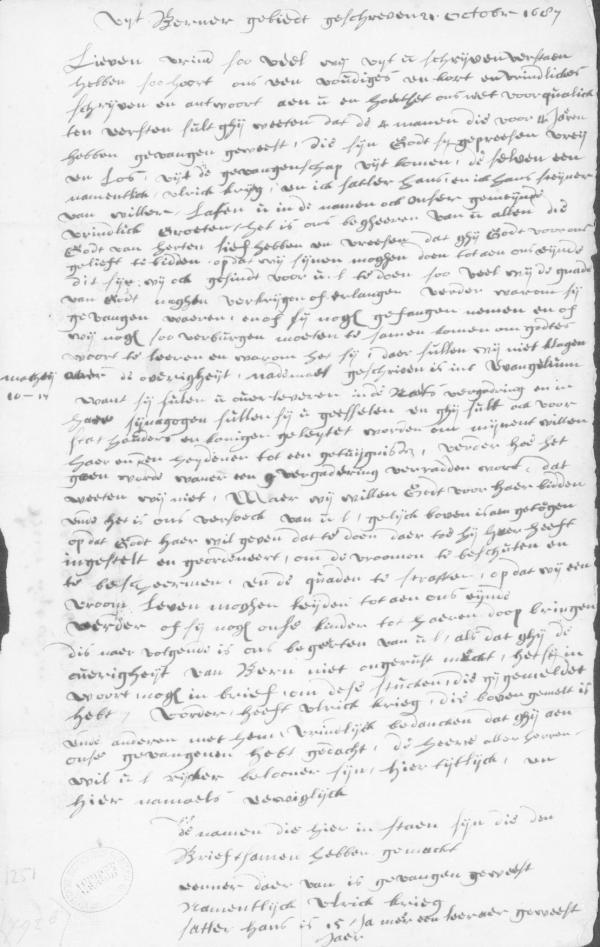 uijt Berner gebiedt geschreven 21 Octobr 1687
Lieven vrind soo veel wij uijt u schrijven verstaen
hebben soo hoort ons een voudiges en kort en vrindliches
schrijven en antwoort aen u en
ten eersten sult ghij weeten dat de 4 manen die voor 4 Jaren
hebben gevangen geweest, die sijn Godt sij gepreesen vreij
en Los, uijt de gevangenschap uijt komen, de selven een
namentlick, ulrick krijg, en ick satler hans, en ick hans steijner
van willer, Lasen u in de namen ock onser gemeijnde
vrindlick Groeten, het is ons begheeren van u allen die
Godt van herten lief hebben en vreesen dat ghij Godt voor ons
gelieft te bidden, op dat wij sijnen moghen doen tot aen ons eijnde
dit sijn wij ock gesindt voor u.l. te doen soo veel wij de genade
van Godt moghen verkrijgen of erlangen verder warom sij
gevangen waeren, en of sij nogh gefangen nemen en of
wij nogh soo verburgen moeten te samen komen om godtes
woort te leeren en warom het sij, daer sullen wij niet klagen
over de overigheijt, nademael geschreven is int Evangelium
Matheij
10 - 17
want sij sulen u overleveren in de Rats vergadring en in
haer sijnagogen sullen sij u geesselen en ghij sult ock voor
stat houders en konigen geleijtet worden om mijnent willen
haer en den heydener tot een getuijgnis, verder hoe het
gaen worde waneer een vergadering verraden wort, dat
weeten wij niet, Maer wij willen Godt voor haer bidden
ende het is ons versoeck van u l, gelijck boven is an getogen
op dat Godt haer wil geven dat te doen daer toe hij haer heeft
ingestelt en geordeneert, om de vroomen te beschuten en
te beschermen, en de quaden te straffen, op dat wij een
vroom Leven moghen leijden tot aen ons eijnde
werder of sij nogh onse kinder tot haeren doop bringen
dis naer volgende is ons begerten van u l, als dat ghij de
overigheijt van Bern niet ongerust mackt, het sij in
woort, nogh in brief, om dese stucken, die gij gemeldet
hebt, Vorder, heeft ulrick krieg, die boven gemelt is
ende anneren met hem, vrindlijck bedancken dat ghij aen
onse gevangenen hebt gedacht, de heere aller herren
wil u l rijcker beloner sijn, hier tijtlijck, en
hier namaels eewiglijck
de namen die hier in staen sijn die den
Brief tsamen hebben gemackt
eenner daer van is gevangen geweest
Namentlijck ulrick krieg
satler hans is 15 Ja mer een leeraer geweest
Jaer
1251